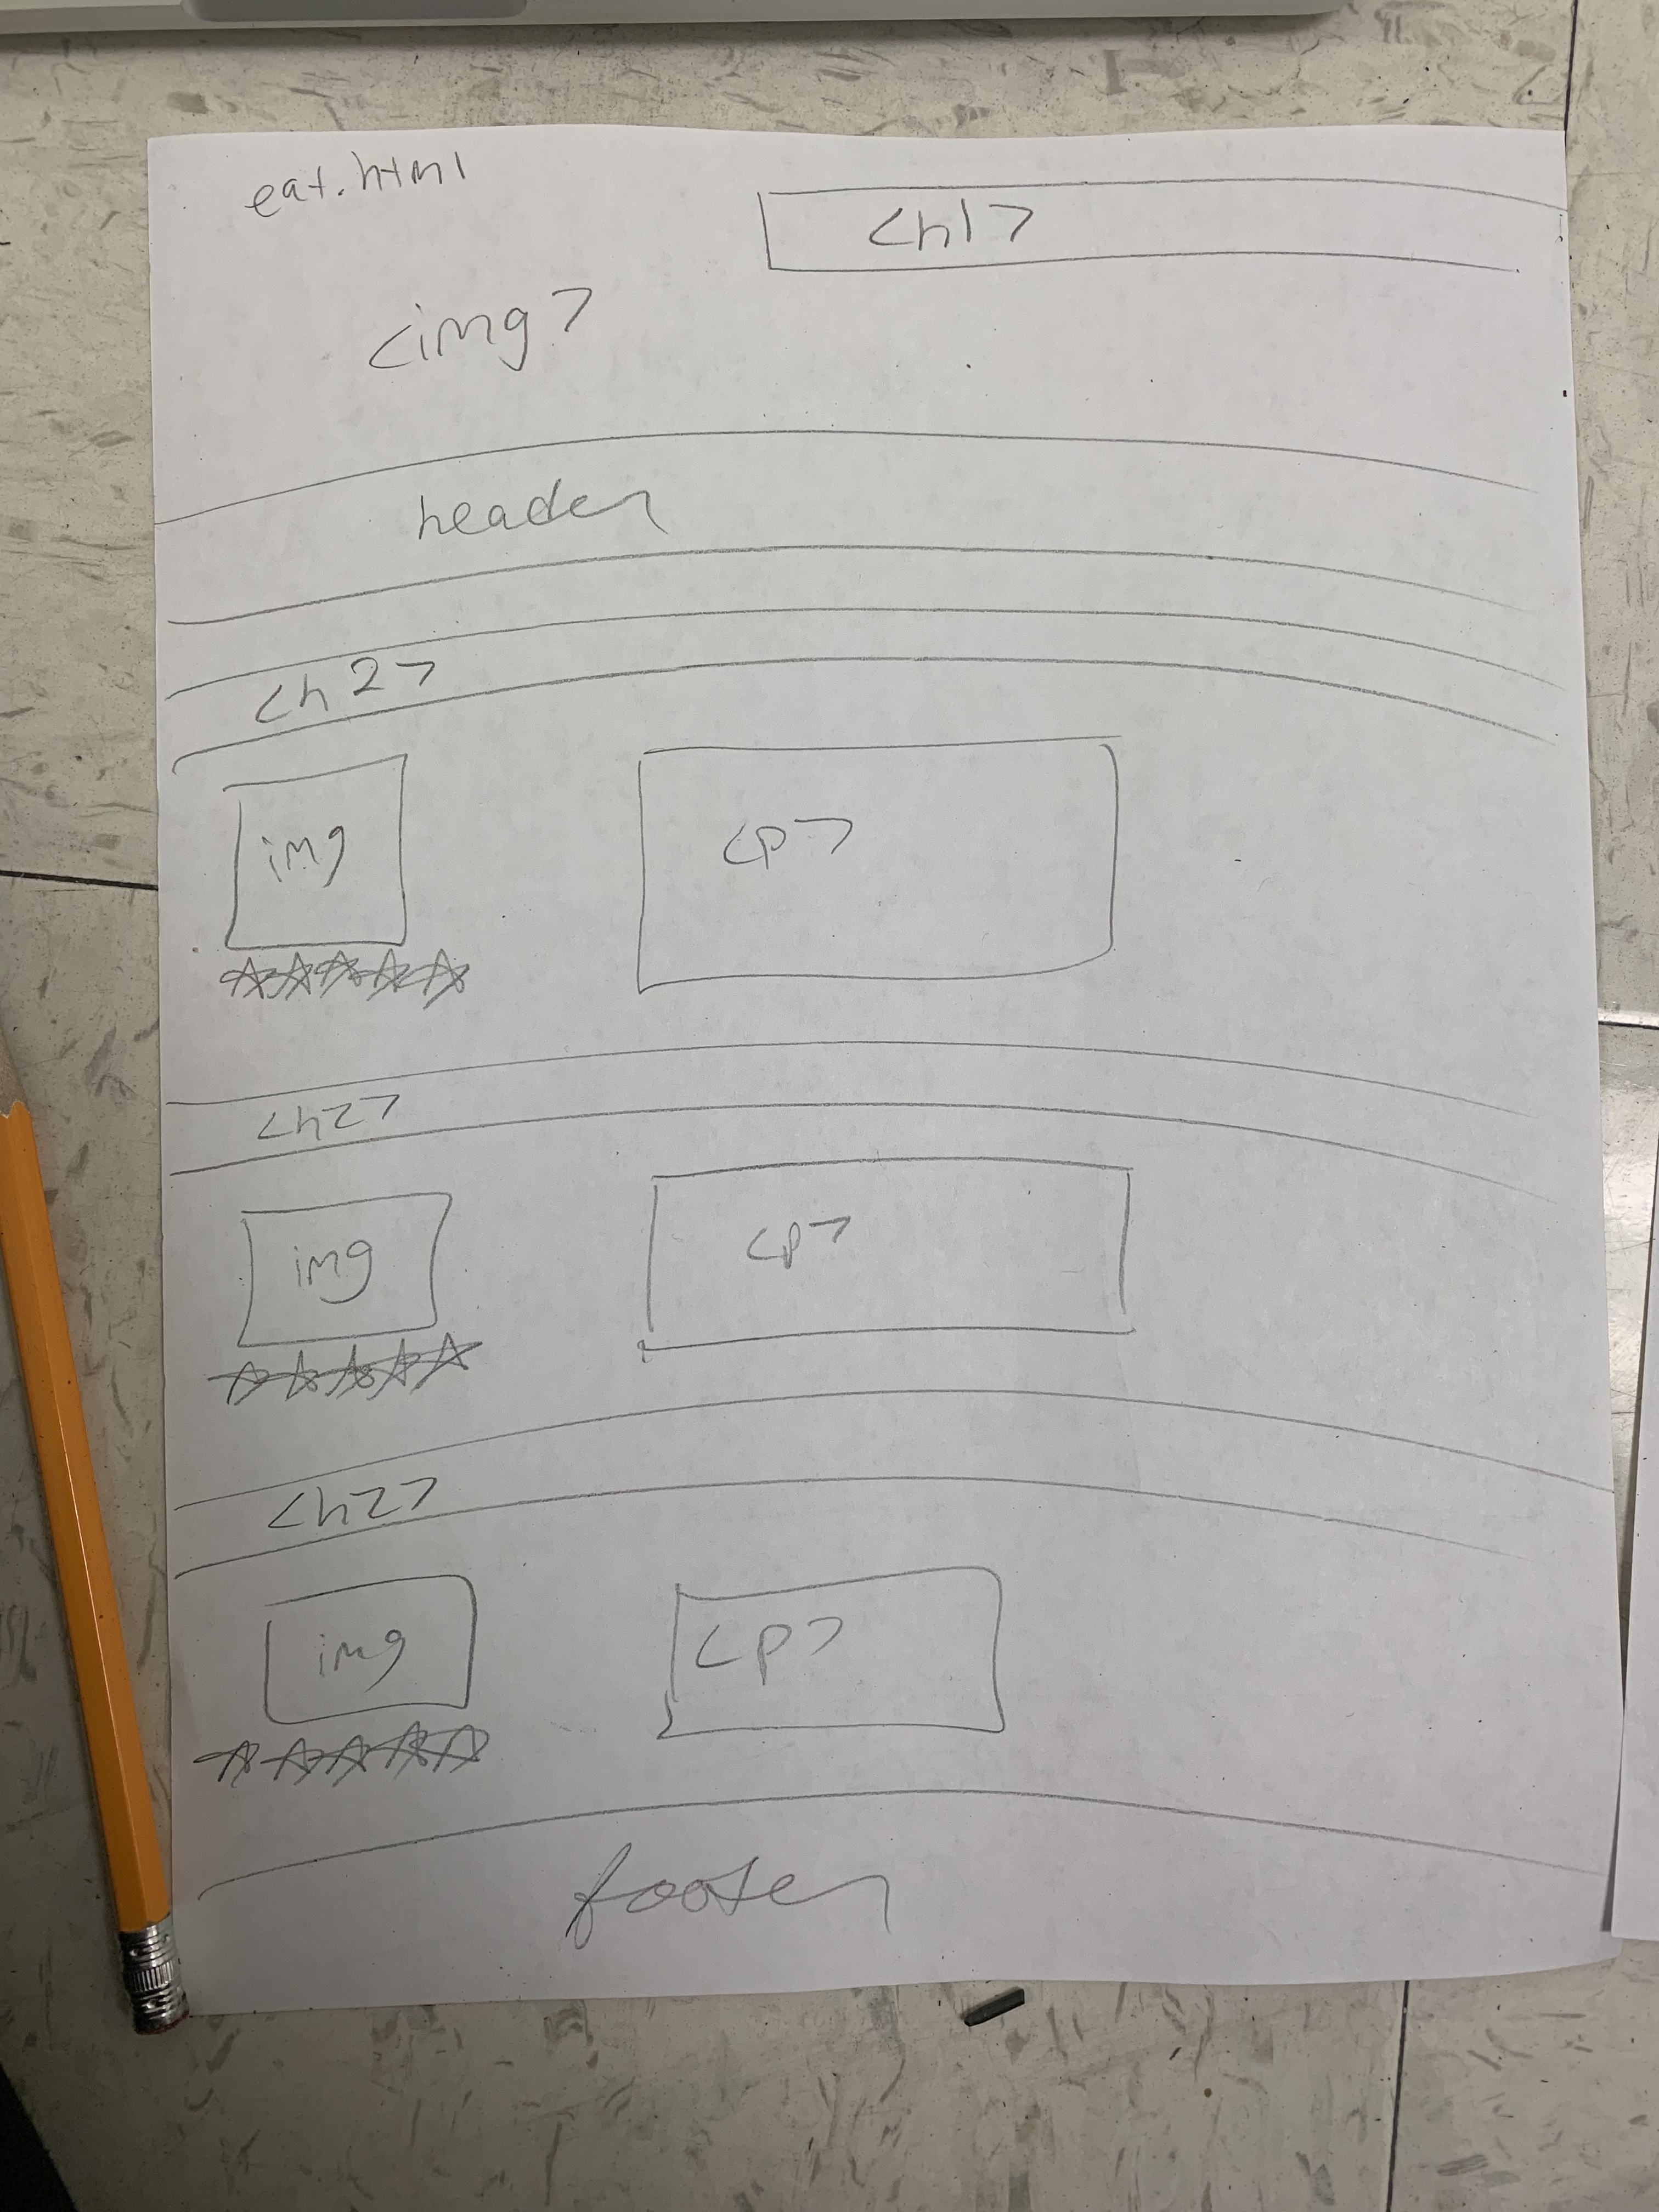 eat.html
<h1>
<img>
header
<h2>
img
<p>
<h2>
img
<p>
<h2>
img
<p>
footer